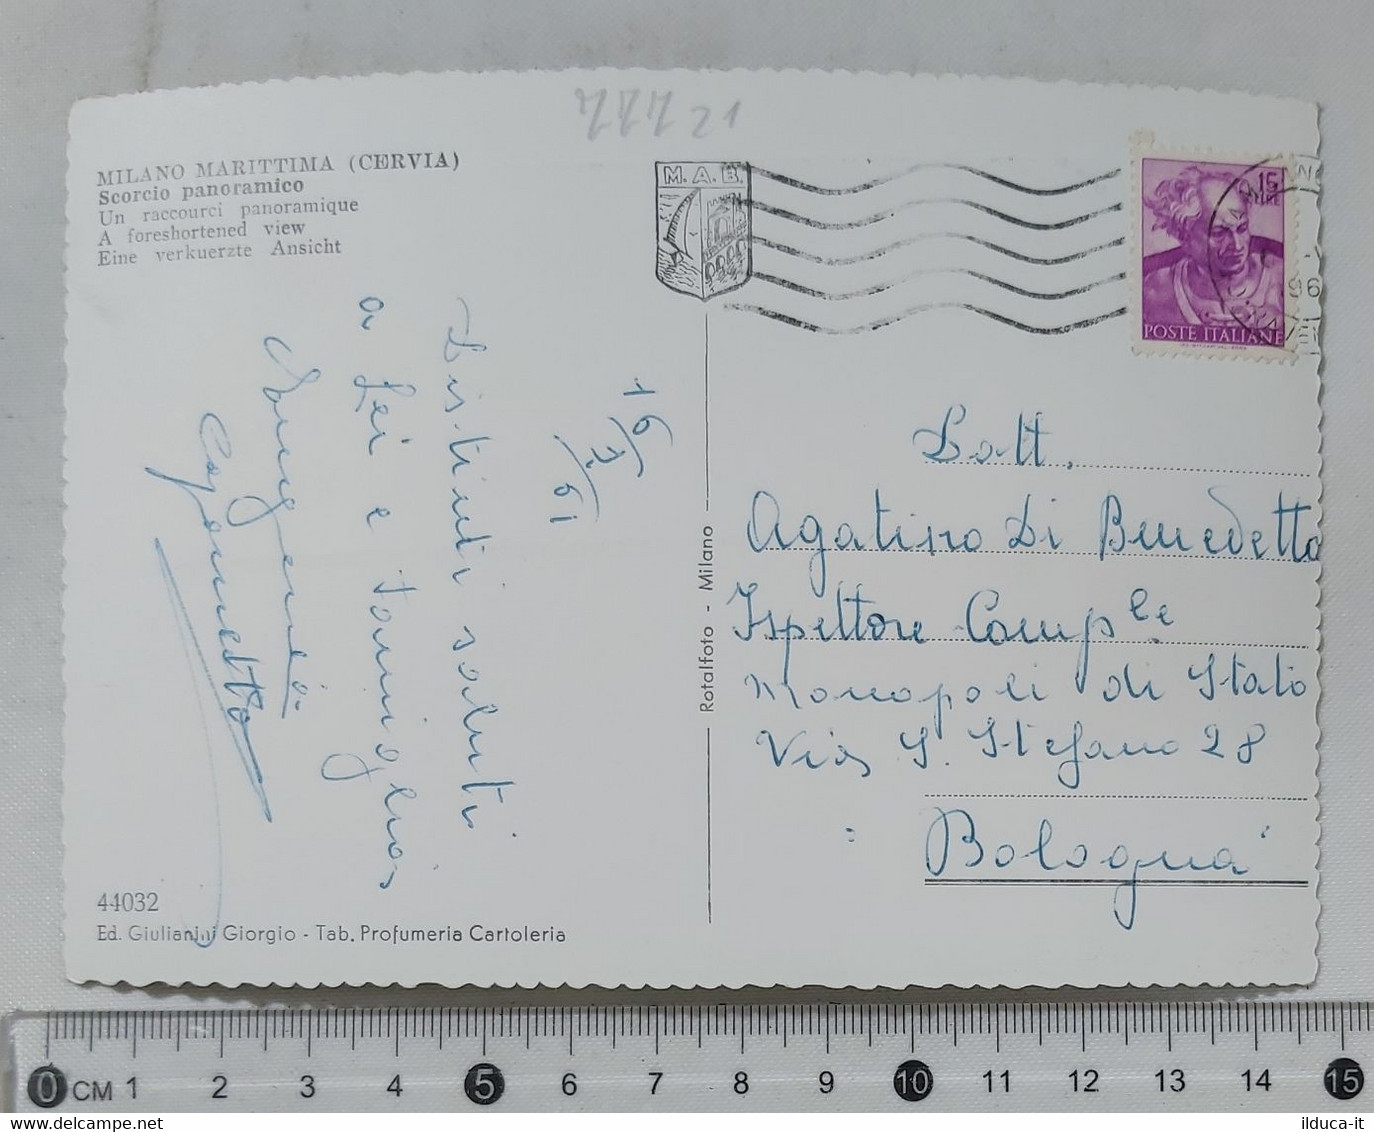 ZZZ 21
MILANO MARITTIMA (CERVIA)
Scorcio panoramico
Un raccourci panoramique
A foreshortened view
Eine verkuerzte Ansicht
M.A.B.
15
LIRE
POSTE ITALIANE
16/7/61
Distinti saluti
a Lei e famiglia
Caponetto
Dott.
Agatino Di Benedetto
Ispettore Comp.le
Monopoli di Stato
Via S. Stefano 28
Bologna
Rotalfoto - Milano
44032
Ed. Giulianini Giorgio - Tab. Profumeria Cartoleria
0 CM 1 2 3 4 5 6 7 8 9 10 11 12 13 14 15
ilduca-it